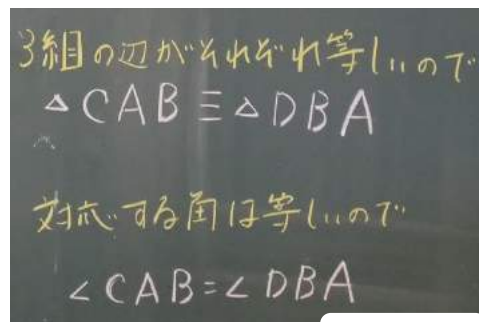 3組の辺がそれぞれ等しいので
△CAB≡△DBA
対応する角は等しいので
∠CAB=∠DBA